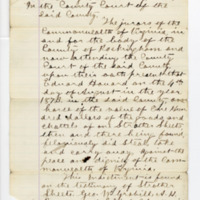 In the County Court of the
said County.
The jurors of the
Commonwealth of Virginia in
and for the body of the
County of Rockingham and
now attending the County
Court of the said County
upon their oath present that
Howard on the 6th
day of August in the year
187 in the said County one
horse of the value of One Hun
dred dollars of the goods and
chattels of one Strother Sheets
then and there being found,
feloniously did steal take
and carry away, against the
peace and dignity of the Com
monwealth of Virginia.
This Indictment found
on the testimony of Strother
Sheets, Geo. W. H.